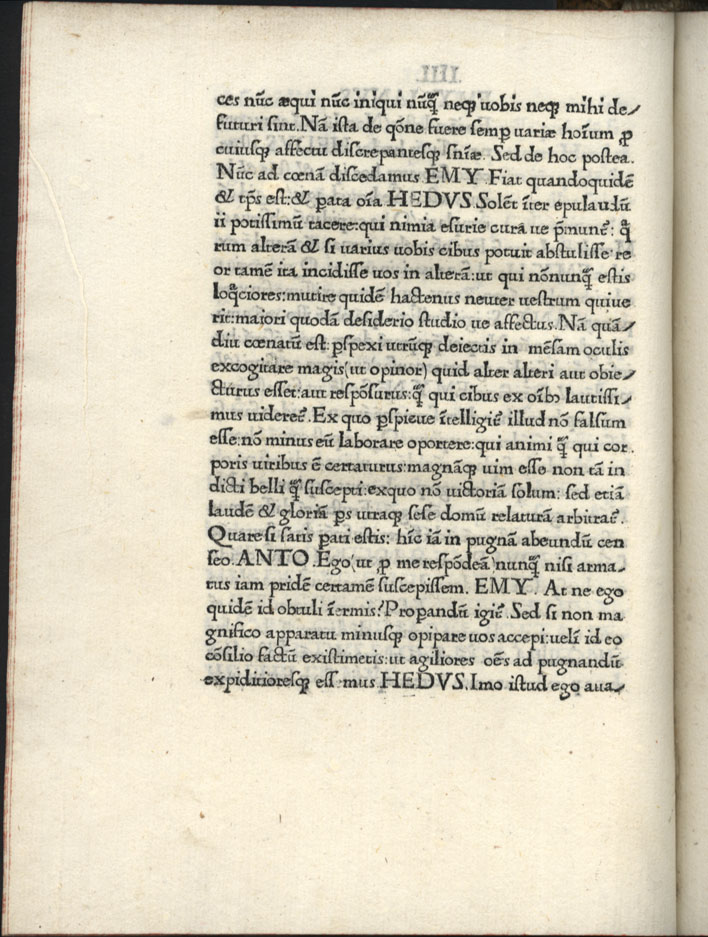 ces nūc æqui nūc iniqui nūꝗ̃ neqꝫ uobis neqꝫ mihi de⸗
futuri sint. Nā ista de qōne fuere semꝑ uariæ hoīum ꝓ
cuiusqꝫ affectu discrepantesqꝫ snīæ. Sed de hoc postea.
Nūc ad cœnā discedamus EMY. Fiat quandoquidē
& tp̄s est: & ꝑata oīa HEDVS. Solēt īter epulandū
ii potissimū tacere: qui nimia esurie cura ue p̄munt̄: ꝗ̃
rum alterā & si uarius uobis cibus potuit abstulisse: re
or tamē ita incidisse uos in alterā: ut qui nōnunꝗ̃ estis
loq̄ciores: mutire quidē hactenus neuter uestrum quiue
rit: maiori quodā desiderio studio ue affectus. Nā quā⸗
diu cœnatū est: ꝑspexi utrūqꝫ deiectis in mēsam oculis
excogitare magis (ut opinor) quid alter alteri aut obie⸗
cturus esset: aut respōsurus: ꝗ̃ qui cibus ex oībꝫ lautissi⸗
mus uideret̄. Ex quo ꝑspicue ītelligit̄ illud nō falsum
esse: nō minus eū laborare oportere: qui animi ꝗ̃ qui cor
poris uiribus ē certaturus: magnāqꝫ uim esse non tā in
dicti belli ꝗ̃ suscepti: exquo nō uictoriā solum: sed etiā
laudē & gloriā ꝑs utraqꝫ sese domū relaturā arbitrat̄.
Quare si satis ꝑati estis: hīc iā in pugnā abeundū cen
seo. ANTO. Ego (ut ꝓ me respōdeā) nunꝗ̃ nisi arma⸗
tus iam pridē certamē suscepissem. EMY. At ne ego
quidē id obtuli īermis? Propandū igit̄. Sed si non ma
gnifico apparatu minusqꝫ opipare uos accepi: uelī id eo
cōsilio factū existimetis: ut agiliores oēs ad pugnandū
expiditioresqꝫ essemus HEDVS. Imo istud ego aua⸗